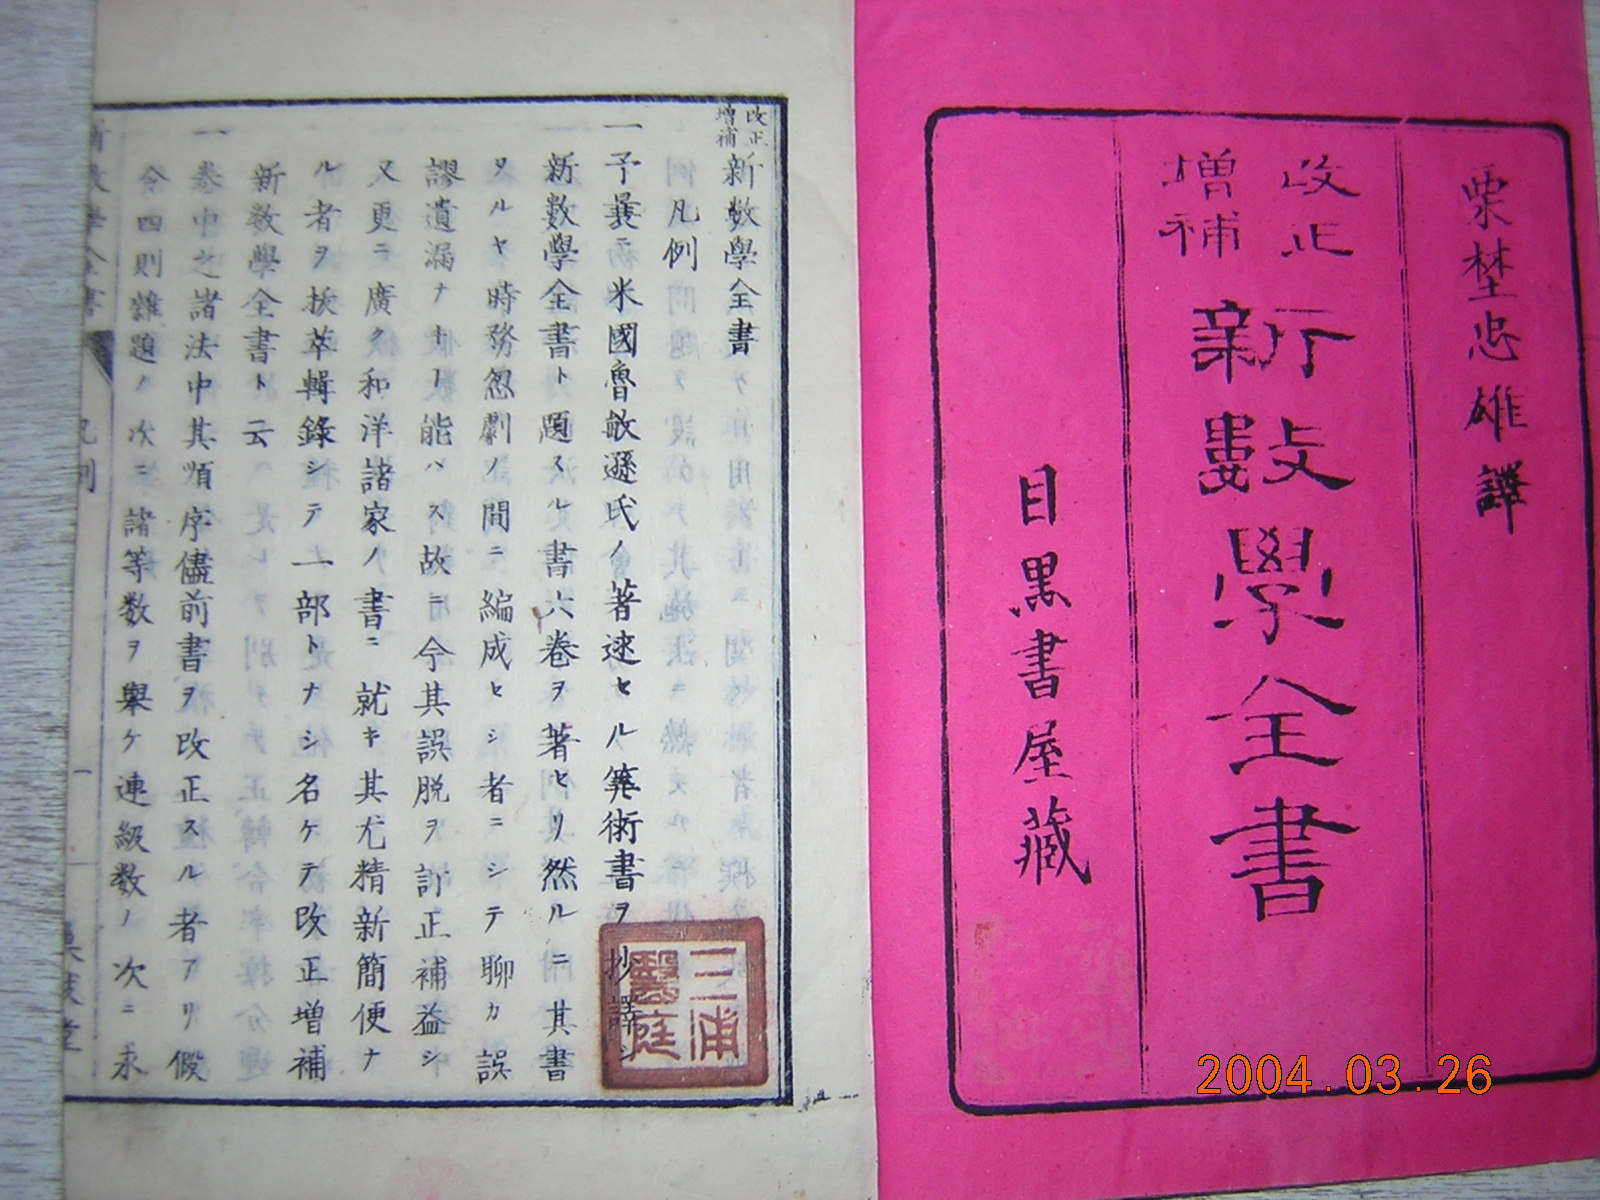 栗埜忠雄譯
改正
増補
新數學全書
目黒書屋藏
改正
増補
新數學全書
凡例
一予曩ニ米國魯敏遜氏ノ著述セル筭術書ヲ抄譯シ
新數學全書ト題スル書六卷ヲ著セリ然ルニ其書
タルヤ時務怱劇ノ間ニ編成セシ者ニシテ聊カ誤
謬遺漏ナキ能ハス故ニ今其誤脱ヲ訂正補益シ
又更ニ廣ク和洋諸家ノ書ニ就キ其尤精新簡便ナ
ル者ヲ抜萃輯錄シテ一部トナシ名ケテ改正増補
新数學全書ト云
一卷中之諸法中其順序儘前書ヲ改正スル者アリ假
令四則雜題ノ次ニ諸等数ヲ舉ケ連級数ノ次ニ求
新数學全書
凡例
一
三浦
醫庭
2004.03.26